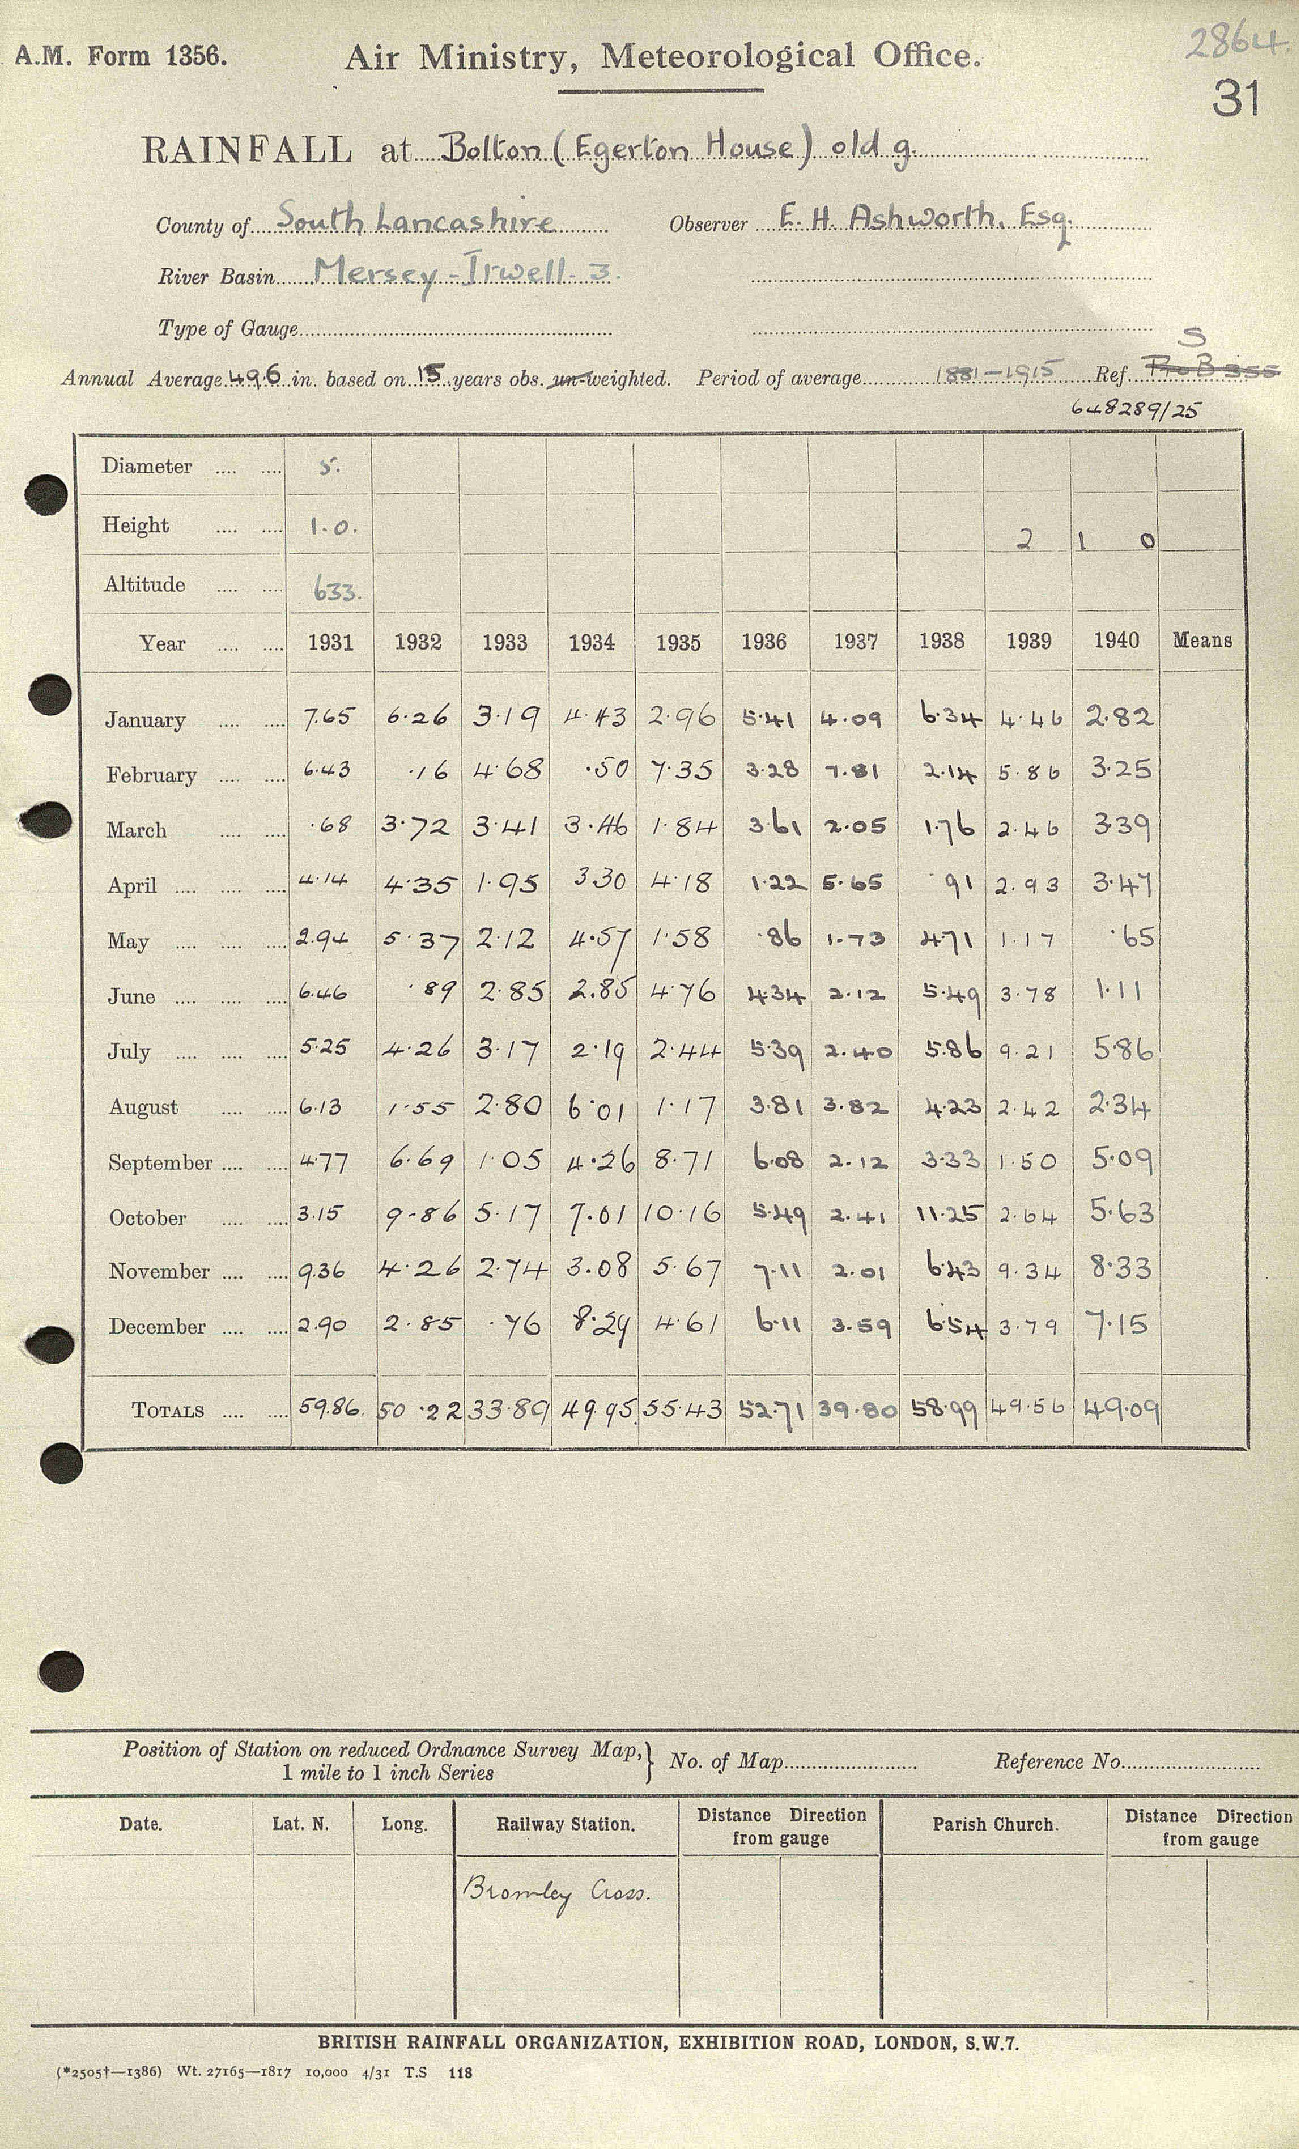 2864.
A.M. Form 1356. Air Ministry, Meteorological Office.
31
RAINFALL at Bolton (Egerton House) old g.
County of South Lancashire Observer E. H. Ashworth, Esq.
River Basin Mersey - Irwell - 3.
Type of Gauge
S
Annual Average 49.6 in. based on 15 years obs. un-weighted. Period of average 1881-1915 Ref.
648289/25
Diameter 5.
Height 1.0. 2 1 0
Altitude 633.
Year 1931 1932 1933 1934 1935 1936 1937 1938 1939 1940 Means
January 7.65 6.26 3.19 4.43 2.96 5.41 4.09 6.34 4.46 2.82
February 6.43 .16 4.68 .50 7.35 3.28 7.81 2.14 5.86 3.25
March .68 3.72 3.41 3.46 1.84 3.61 2.05 1.76 2.46 3.39
April 4.14 4.35 1.95 3.30 4.18 1.22 5.65 .91 2.93 3.47
May 2.94 5.37 2.12 4.57 1.58 .86 1.73 4.71 1.17 .65
June 6.46 .89 2.85 2.85 4.76 4.34 2.12 5.49 3.78 1.11
July 5.25 4.26 3.17 2.19 2.44 5.39 2.40 5.86 9.21 5.86
August 6.13 1.55 2.80 6.01 1.17 3.81 3.82 4.23 2.42 2.34
September 4.77 6.69 1.05 4.26 8.71 6.08 2.12 3.33 1.50 5.09
October 3.15 9.86 5.17 7.01 10.16 5.49 2.41 11.25 2.64 5.63
November 9.36 4.26 2.74 3.08 5.67 7.11 2.01 6.43 9.34 8.33
December 2.90 2.85 .76 8.29 4.61 6.11 3.59 6.54 3.79 7.15
TOTALS 59.86 50.22 33.89 49.95 55.43 52.71 39.80 58.99 49.56 49.09
Position of Station on reduced Ordnance Survey Map, No. of Map Reference No.
1 mile to 1 inch Series
Date. Lat. N. Long. Railway Station. Distance Direction from gauge Parish Church. Distance Direction from gauge
Bromley Cross.
BRITISH RAINFALL ORGANIZATION, EXHIBITION ROAD, LONDON, S.W.7.
(*2505†—1386) Wt. 27165—1817 10,000 4/31 T.S 118